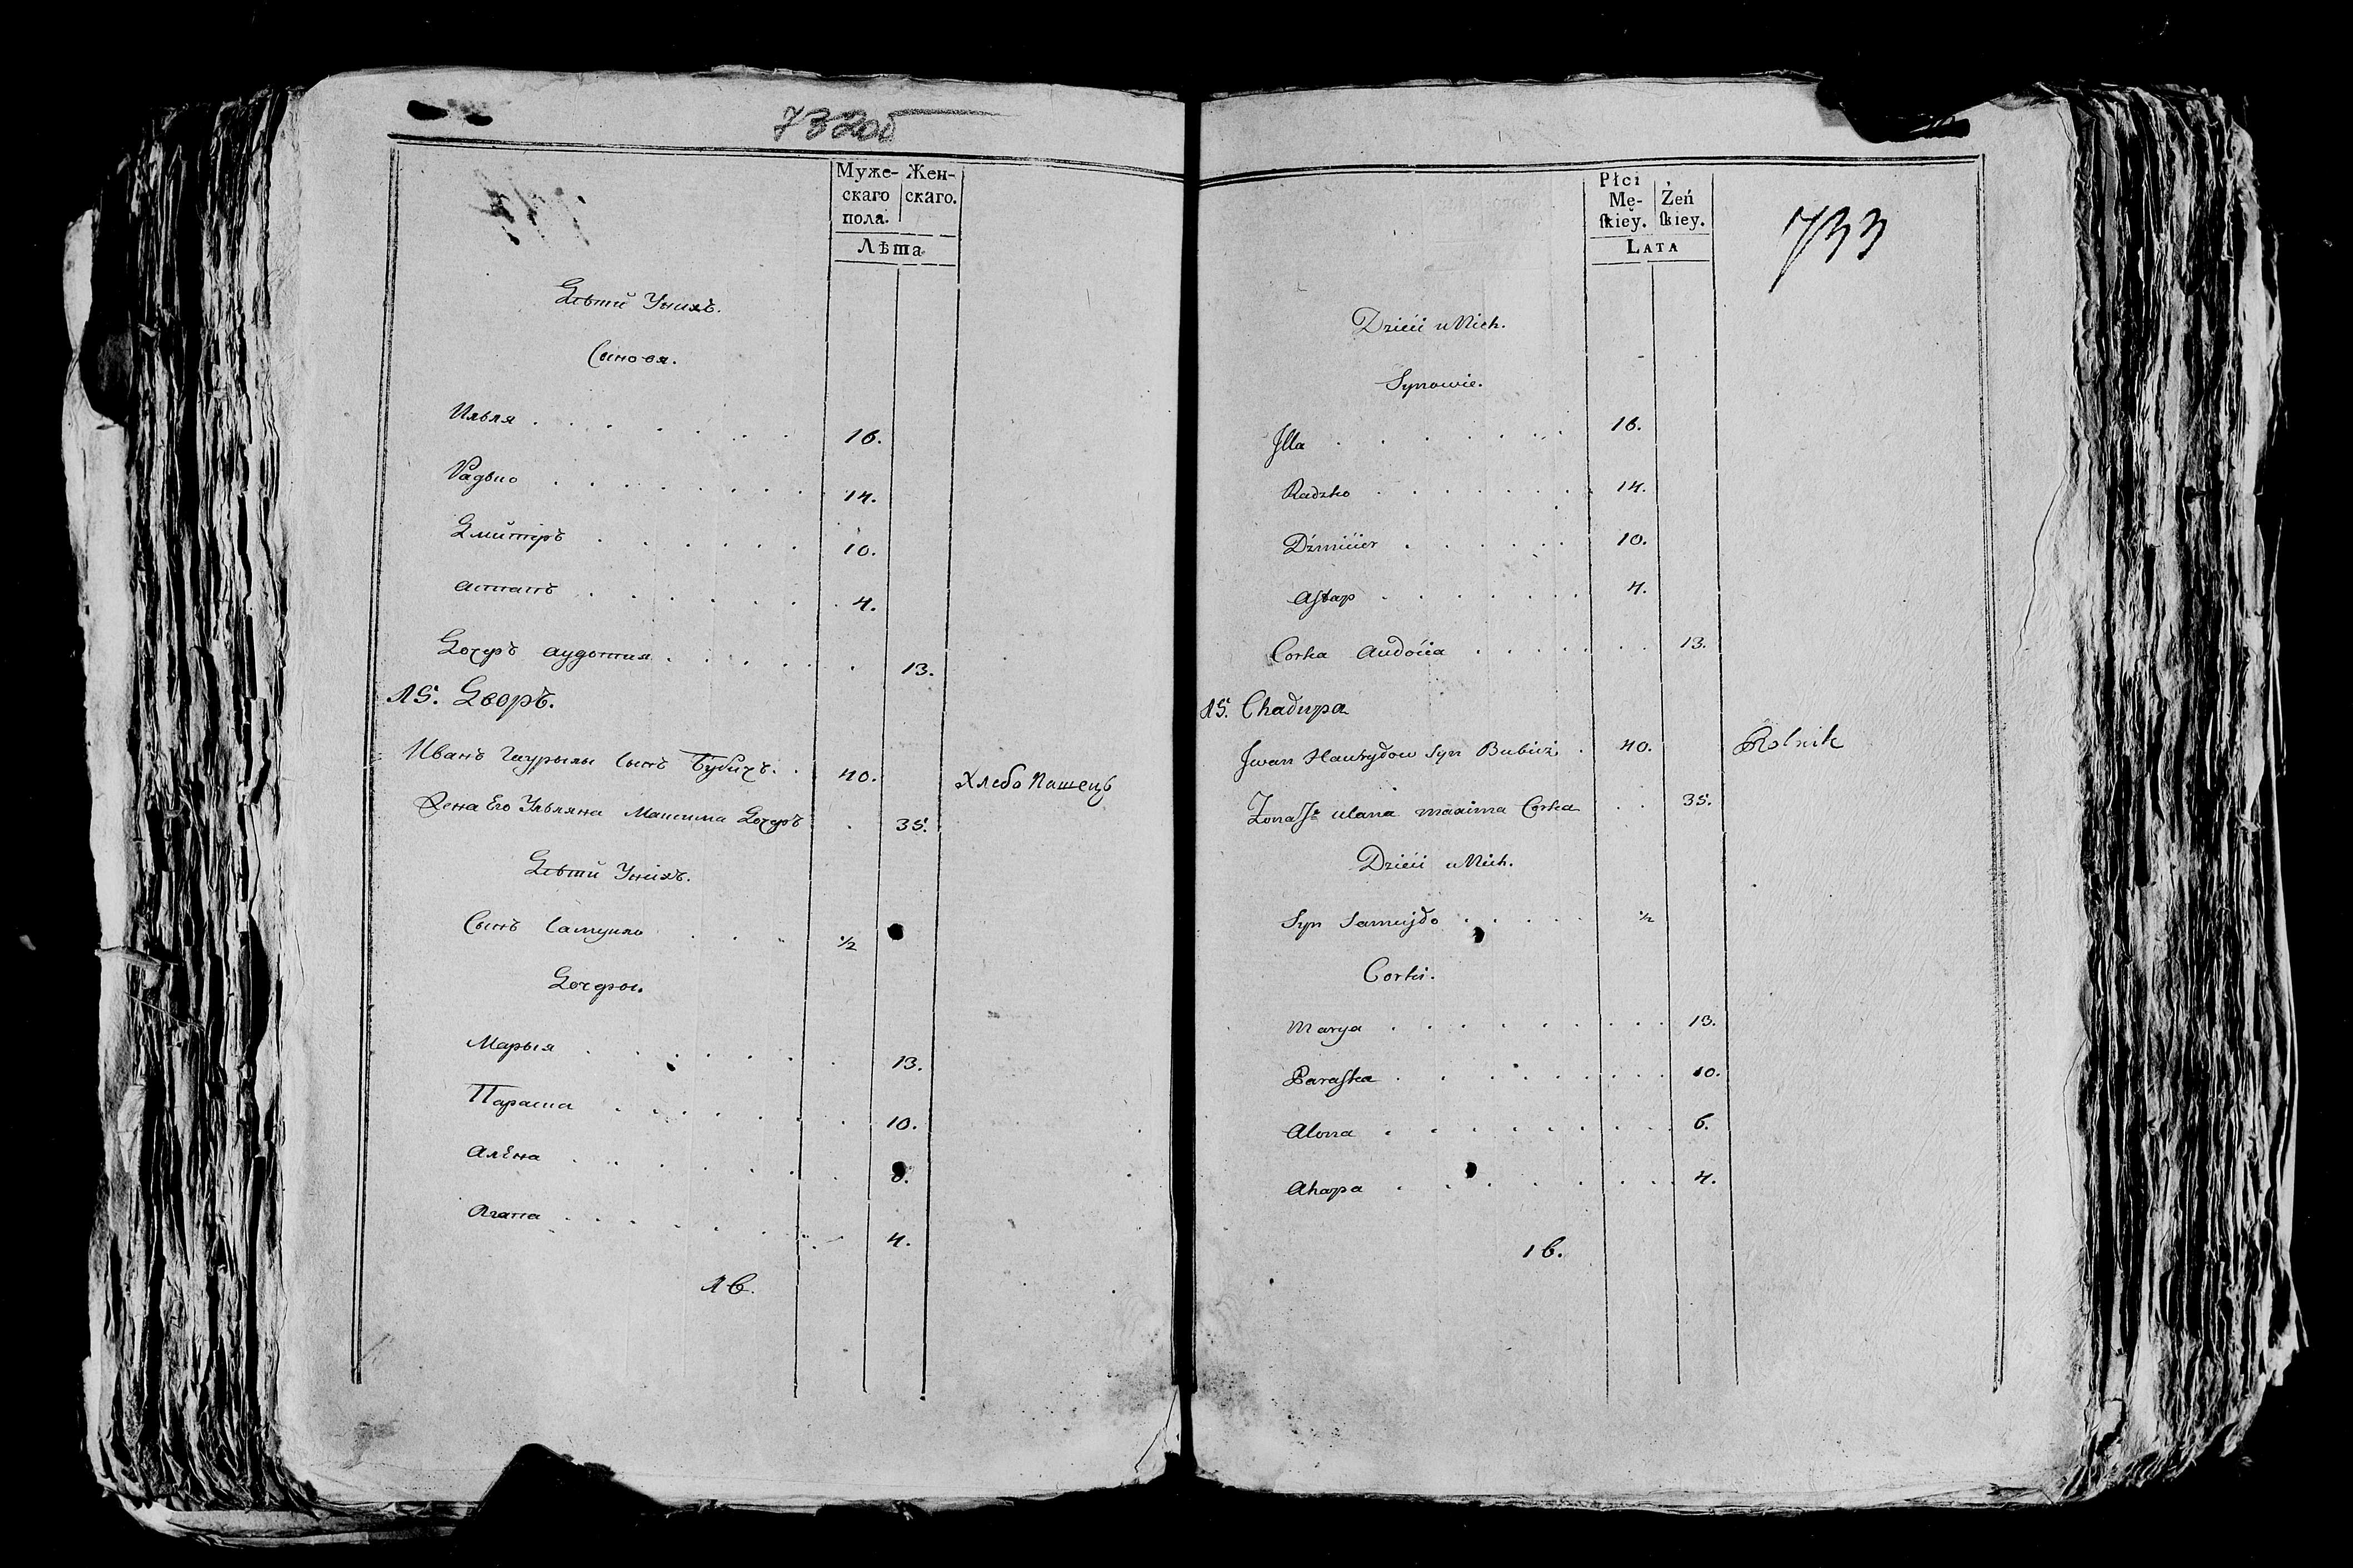 732об
Муже- Жен-
скаго скаго.
пола.
Лѣта
Дѣти Унихъ.
Сыновя.
Илья 16.
Радько 14.
Дмитръ 10.
Астапъ 4.
Дочеръ Аудотия 13.
15. Дворъ.
Иванъ Гаурылы Сынъ Бубичъ. 40. Хлебо Пашецъ
Жена Его Ульяна Максима Дочеръ 35.
Дѣти Унихъ.
Сынъ Самуило 1/2
Дочеры.
Марыя 13.
Параска 10.
Алена 6.
Агапа 4.
16.
Płci
Mę- Żeń
ſkiey. ſkiey.
LATA
733
Dzieći u Nich.
Synowie.
Jlla 16.
Radzko 14.
Dźmićier 10.
Aſtap 4.
Corka Audoćia 13.
15. Chałupa
Jwan Hawryłow Syn Bubicz 40. Rolnik
Zona Je Ulana Maxima Corka 35.
Dzieći u Nich.
Syn Samujło 1/2
Corki.
Marya 13.
Paraſka 10.
Alona 6.
Ahapa 4.
16.